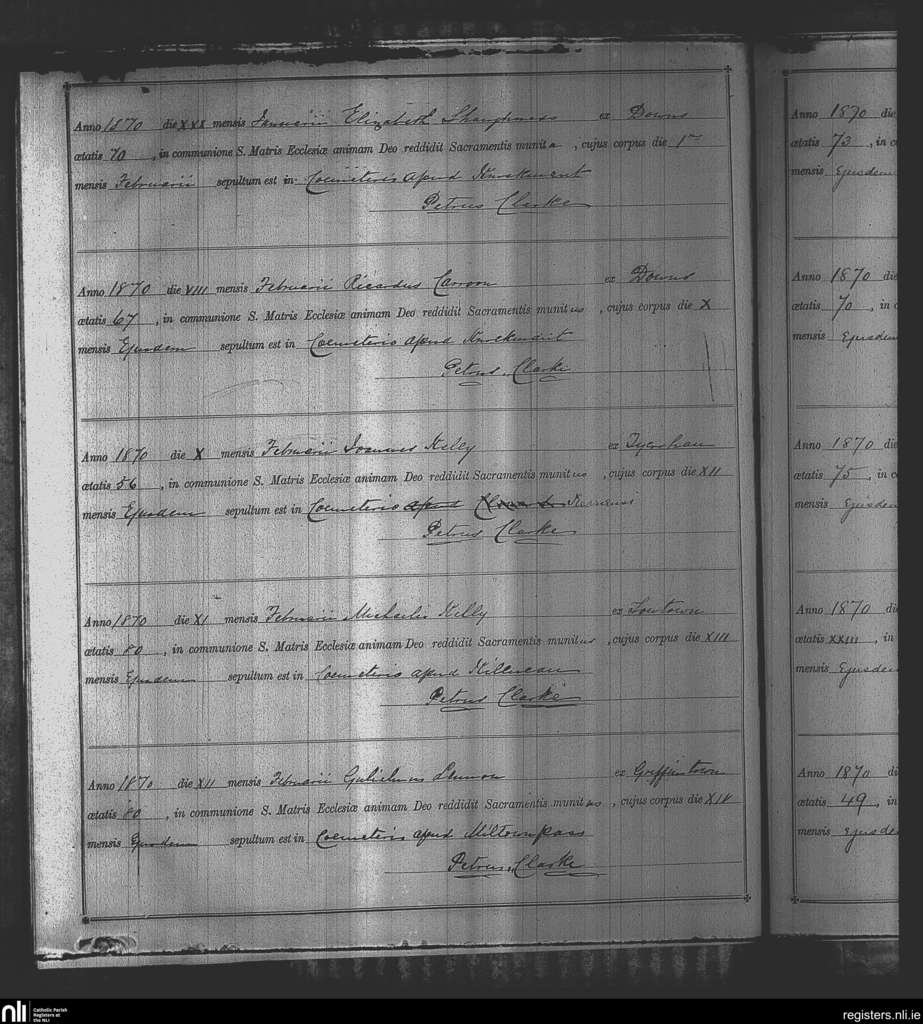 Anno 1870 die XXX mensis Januarii Elizabeth Shaughness ex Downs
ætatis 70, in communione S. Matris Ecclesiæ animam Deo reddidit Sacramentis munita, cujus corpus die 1
mensis Februarii sepultum est in Coemeterio apud
Petrus Clarke
Anno 1870 die VIII mensis Februarii Ricardus ex Downs
ætatis 67, in communione S. Matris Ecclesiæ animam Deo reddidit Sacramentis munitus, cujus corpus die X
mensis Ejusdem sepultum est in Coemeterio apud
Petrus Clarke
Anno 1870 die X mensis Februarii Joannes Kelly ex
ætatis 56, in communione S. Matris Ecclesiæ animam Deo reddidit Sacramentis munitus, cujus corpus die XII
mensis Ejusdem sepultum est in Coemeterio
Petrus Clarke
Anno 1870 die XI mensis Februarii Michaelis Kelly ex Lowtown
ætatis 80, in communione S. Matris Ecclesiæ animam Deo reddidit Sacramentis munitus, cujus corpus die XIII
mensis Ejusdem sepultum est in Coemeterio apud Killucan
Petrus Clarke
Anno 1870 die XII mensis Februarii Gulielmus Lennon ex Griffinstown
ætatis 80, in communione S. Matris Ecclesiæ animam Deo reddidit Sacramentis munitus, cujus corpus die XIV
mensis Ejusdem sepultum est in Coemeterio apud Miltownpass
Petrus Clarke
Anno 1870 die
ætatis 73, in c
mensis Ejusdem
Anno 1870 die
ætatis 70, in c
mensis Ejusdem
Anno 1870 die
ætatis 75, in c
mensis Ejusdem
Anno 1870 die
ætatis XXIII, in
mensis Ejusdem
Anno 1870 di
ætatis 49, in
mensis Ejusde
nli Catholic Parish
Registers at
the NLI
registers.nli.ie